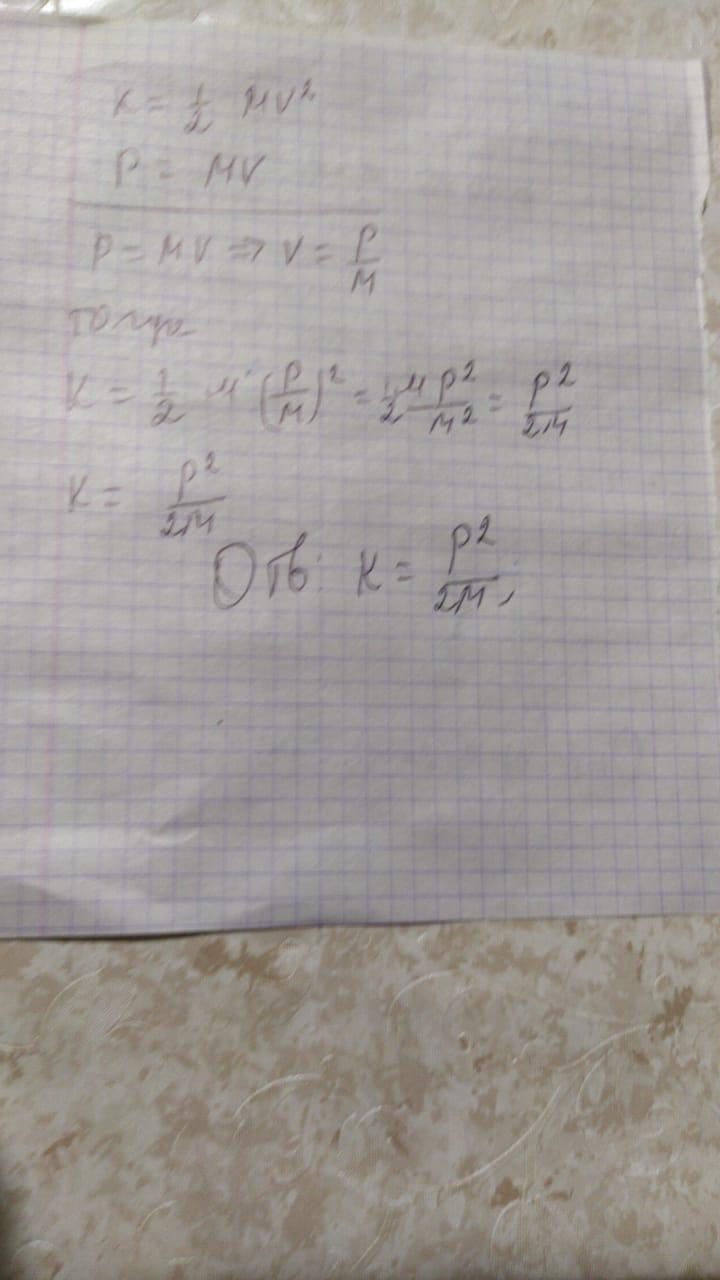 K = 1/2 MV²
P = MV
P = MV => V = P/M
тогда
K = 1/2 M (P/M)² = 1/2 M P²/M² = P²/2M
K = P²/2M
Отв: K = P²/2M,